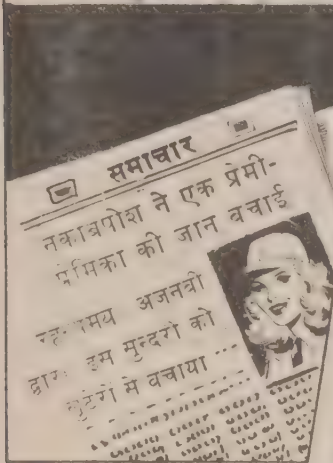 समाचार
नकाबपोश ने एक प्रेमी-
प्रेमिका की जान बचाई
रहस्यमय अजनबी
द्वारा इस सुन्दरी को
लुटेरों से बचाया ...